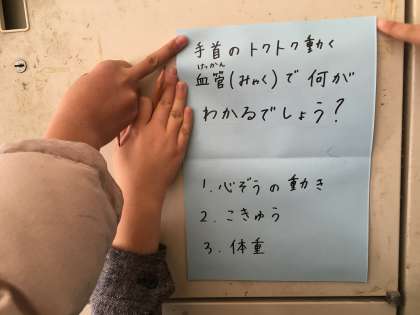 手首のトクトク動く
けっかん
血管(みゃく)で何が
わかるでしょう?
1.心ぞうの動き
2.こきゅう
3.体重